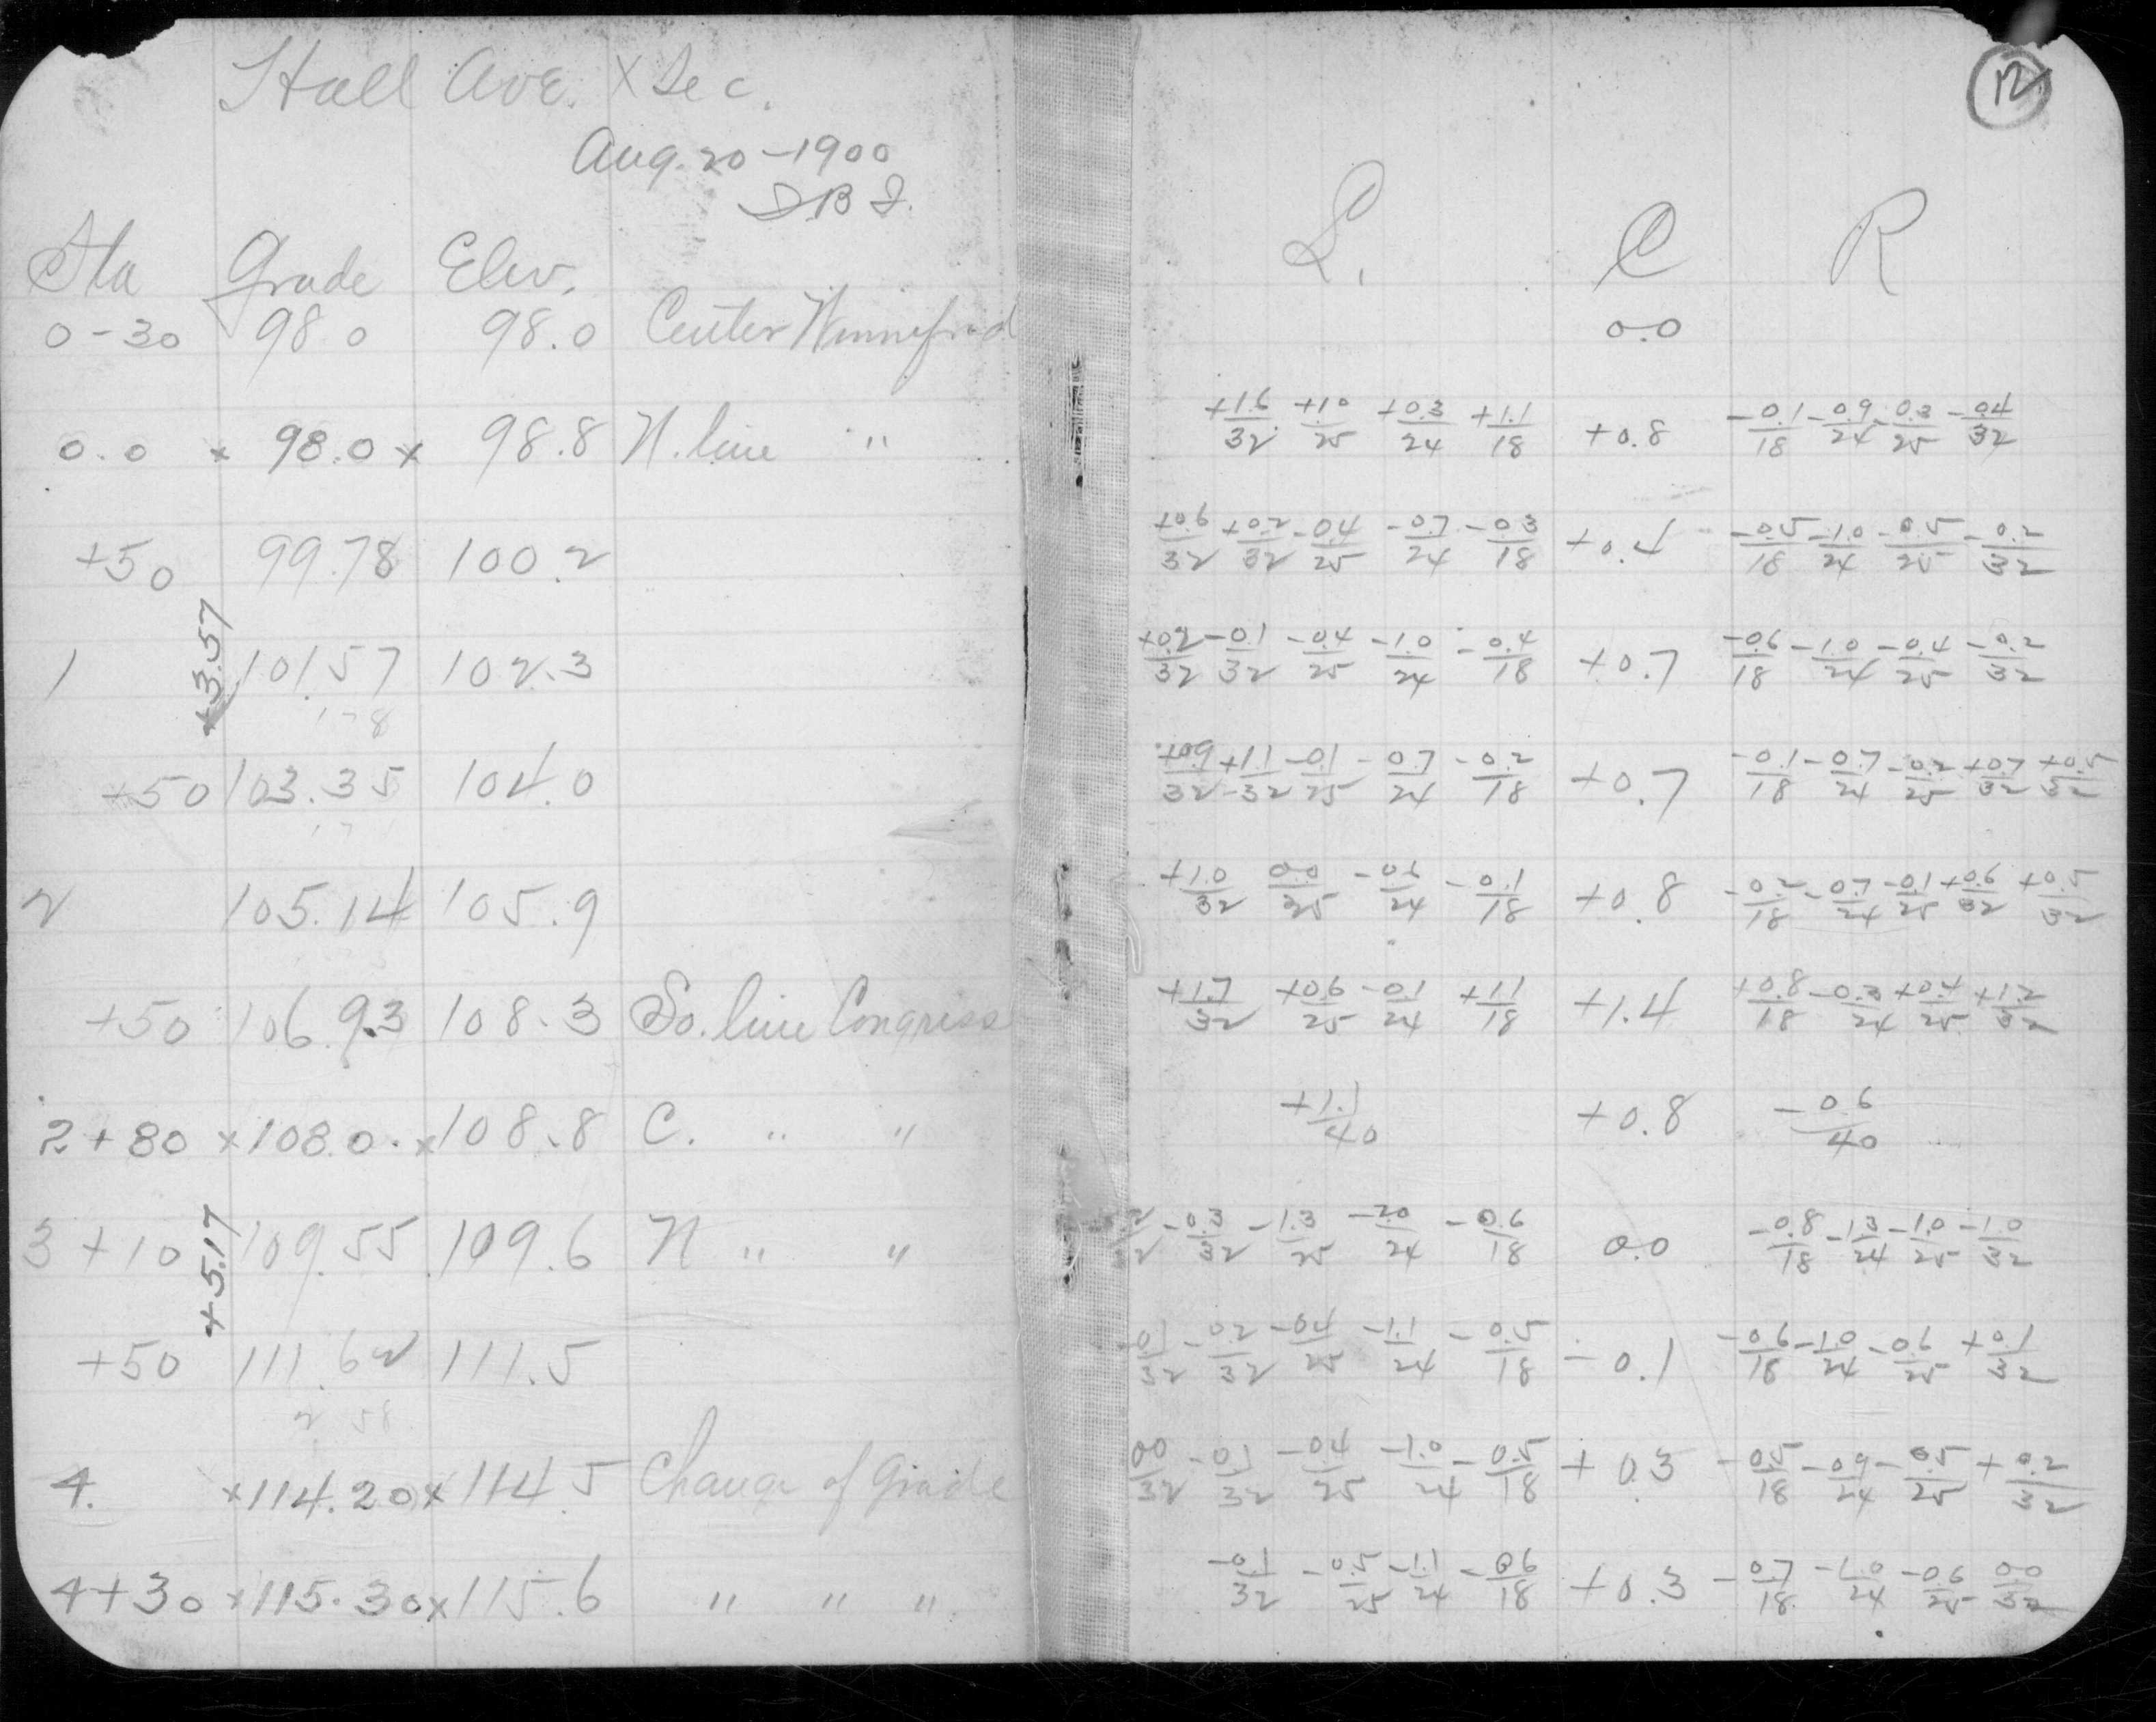 Hall Ave. X Sec.
Aug. 20 - 1900
12
Sta Grade Elev. L. C R
0-30 98.0 98.0 Center Winnefred 0.0
0.0 x 98.0 x 98.8 N. line " +1.6/32 +1.0/25 +0.3/24 +1.1/18 +0.8 -0.1/18 -0.9/24 -0.3/25 -0.4/32
+50 99.78 100.2 +0.6/32 +0.2/32 -0.4/25 -0.7/24 -0.3/18 +0.4 -0.5/18 -1.0/24 -0.5/25 -0.2/32
+3.57
1 101.57 102.3 +0.2/32 -0.1/32 -0.4/25 -1.0/24 -0.4/18 +0.7 -0.6/18 -1.0/24 -0.4/25 -0.2/32
178
+50 103.35 104.0 +0.9/32 +1.1/32 -0.1/25 -0.7/24 -0.2/18 +0.7 -0.1/18 -0.7/24 -0.2/25 +0.7/32 +0.5/32
2 105.14 105.9 +1.0/32 0.0/25 -0.6/24 -0.1/18 +0.8 -0.2/18 -0.7/24 -0.1/25 +0.6/32 +0.5/32
+50 106.93 108.3 So. line Congress +1.7/32 +0.6/25 -0.1/24 +1.1/18 +1.4 +0.8/18 -0.3/24 +0.4/25 +1.2/32
2+80 x 108.0 x 108.8 C. " " +1.1/40 +0.8 -0.6/40
3+10 109.55 109.6 N " " -0.3/32 -1.3/25 -2.0/24 -0.6/18 0.0 -0.8/18 -1.3/24 -1.0/25 -1.0/32
+5.17
+50 111.62 111.5 -0.1/32 -0.2/32 -0.4/25 -1.1/24 -0.5/18 -0.1 -0.6/18 -1.0/24 -0.6/25 +0.1/32
2 58
4. x 114.20 x 114.5 Change of Grade 0.0/32 -0.1/32 -0.4/25 -1.0/24 -0.5/18 +0.3 -0.5/18 -0.9/24 -0.5/25 +0.2/32
4+30 x 115.30 x 115.6 " " " -0.1/32 -0.5/25 -1.1/24 -0.6/18 +0.3 -0.7/18 -1.0/24 -0.6/25 0.0/32